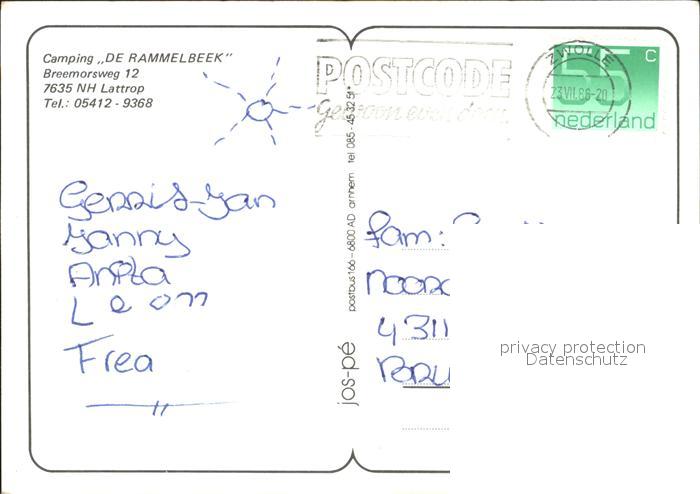 Camping „DE RAMMELBEEK"
Breemorsweg 12
7635 NH Lattrop
Tel.: 05412 - 9368
Gerrit-Jan
Janny
Anita
Leon
Frea
jos-pé
postbus 166 – 6800 AD arnhem tel 085 - 453251*
POSTCODE
Gewoon even doen.
ZWOLLE
23.VII.86-20
55 C
nederland
fam:
4311
privacy protection
Datenschutz